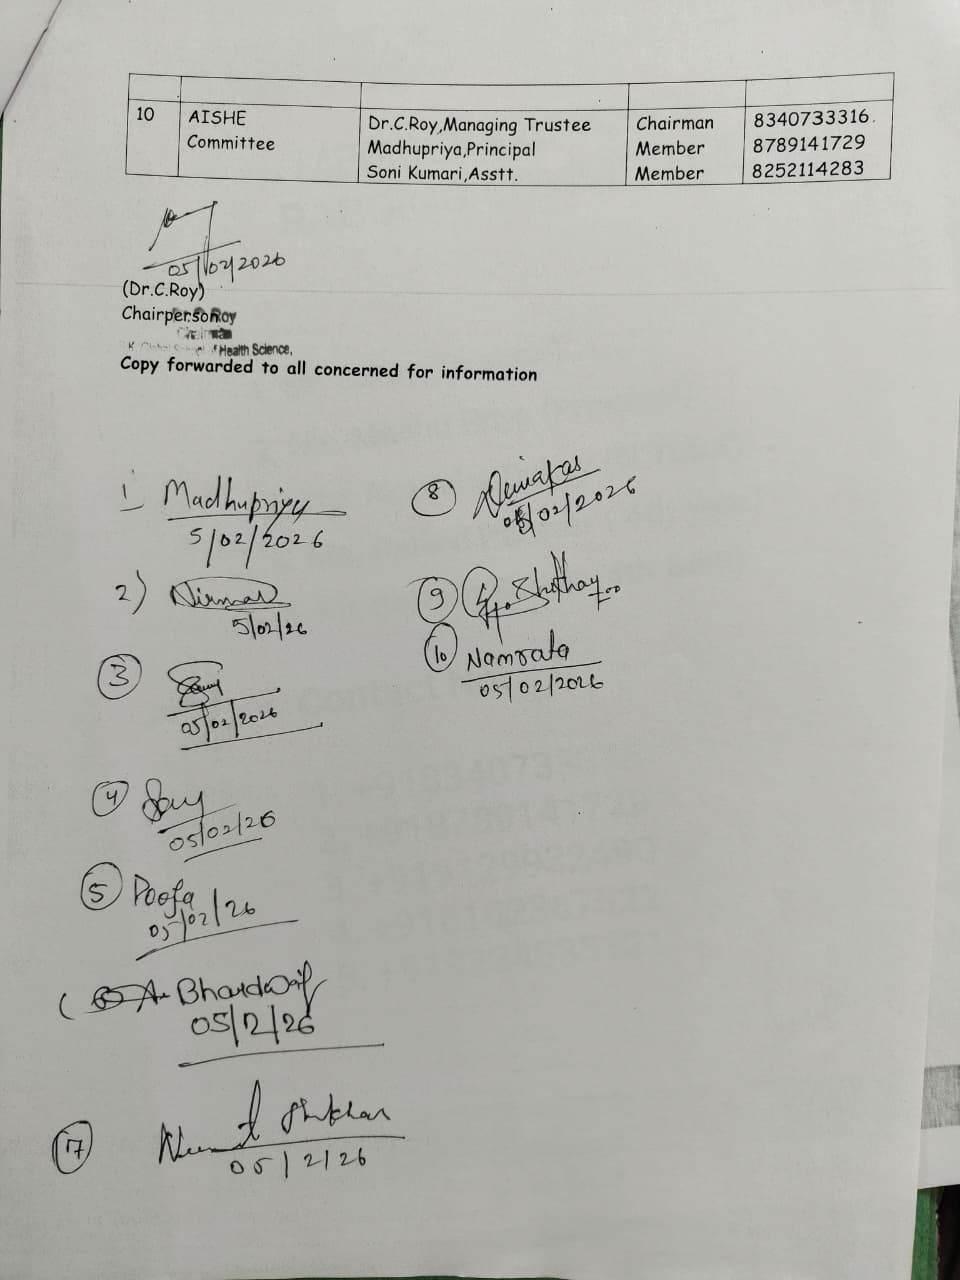 10 AISHE Committee Dr.C.Roy,Managing Trustee Chairman 8340733316.
Madhupriya,Principal Member 8789141729
Soni Kumari,Asstt. Member 8252114283
05/02/2026
(Dr.C.Roy)
Chairperson
Roy
Chairman
Health Science,
Copy forwarded to all concerned for information
1 Madhupriya
5/02/2026
2) Nirmal
5/02/26
3
05/02/2026
4
05/02/26
5 Pooja
05/02/26
A. Bhardwaj
05/2/26
7
05/2/26
8
05/02/2026
9
10 Namrata
05/02/2026